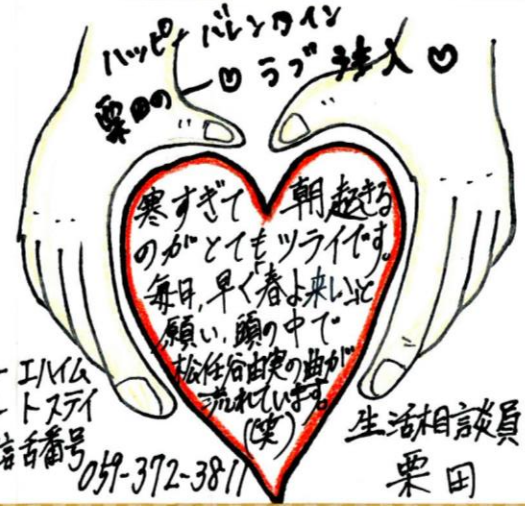 ハッピーバレンタイン
栗田の一♡ラブ注入♡
寒すぎて 朝起きる
のがとてもツライです。
毎日、「早く春よ来い」と
願い、頭の中で
松任谷由実の曲が
流れています。
(笑)
エハイム
トステイ
電話番号
059-372-3811
生活相談員
栗田